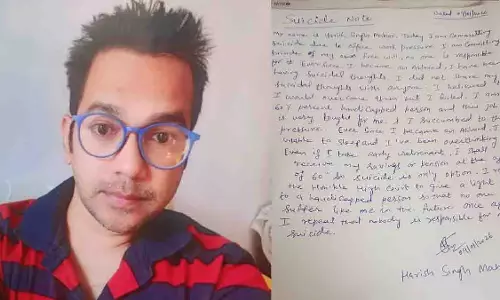 Suicide Note
My name is Harish Singh Today I am Committing
Suicide due to office work pressure. I am Committing
Suicide of my own free will, no one is responsible
for it. Ever since I became an Ahlmad, I have been
having suicidal thoughts I did not share my
suicidal thoughts with anyone. I believed
I would overcome them but I failed I am
60% handicapped person and this job
is very tough for me. & I succumbed to the
pressure. Ever since I became an Ahlmad
unable to sleep and I've been overthinking
Even if I take early retirement, I shall
receive my savings or Pension at the
of 60 So suicide is only option. I
the Hon'ble High Court to give a light
to a handicapped person so that no one
suffer like me in the future Once
I repeat that nobody is responsible for
suicide.
Harish Singh